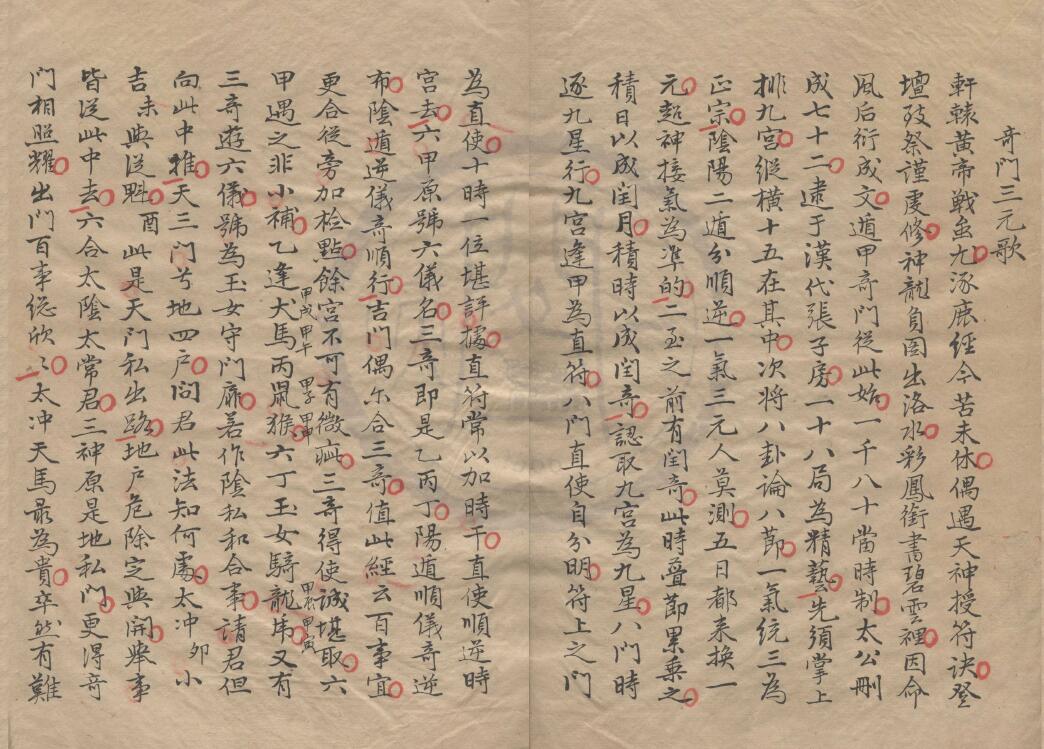 奇門三元歌
軒轅黃帝戰蚩尤涿鹿經今苦未休偶遇天神授符訣登
壇致祭謹虔修神龍負圖出洛水彩鳳銜書碧雲裡因命
風后衍成文遁甲奇門從此始一千八十當時制太公刪
成七十二逮于漢代張子房一十八局為精藝先須掌上
排九宮縱橫十五在其中次將八卦論八節一氣統三為
正宗陰陽二遁分順逆一氣三元人莫測五日都来換一
元超神接氣為準的二至之前有閏奇此時疊節累乘之
積日以成閏月積時以成閏奇認取九宮為九星八門時
逐九星行九宮逢甲為直符八門直使自分明符上之門
為直使十時一位堪評據直符常以加時干直使順逆時
宮去六甲原號六儀名三奇即是乙丙丁陽遁順儀奇逆
布陰遁逆儀奇順行吉門偶尔合三奇值此經云百事宜
更合從旁加檢點餘宮不可有微疵三奇得使誠堪取六
甲遇之非小補乙逢犬馬甲戌甲午丙鼠猴甲子甲申六丁玉女騎龍虎甲辰甲寅又有
三奇遊六儀號為玉女守門扉若作陰私和合事請君但
向此中推天三門兮地四户問君此法知何處太冲卯小
吉未與從魁酉此是天門私出路地户危除定與開舉事
皆從此中去六合太陰太常君三神原是地私門更得奇
門相照耀出門百事總欣〻太冲天馬最為貴卒然有難